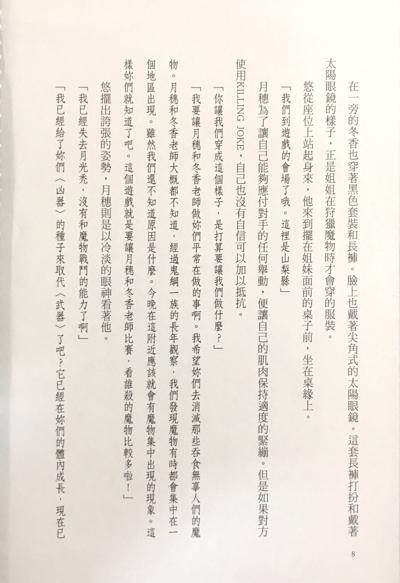 在一旁的冬香也穿著黑色套裝和長褲。臉上也戴著尖角式的太陽眼鏡。這套長褲打扮和戴著
太陽眼鏡的樣子，正是姐姐在狩獵魔物時才會穿的服裝。
悠從座位上站起身來，他來到擺在姐妹面前的桌子前，坐在桌緣上。
「我們到遊戲的會場了哦。這裡是山梨縣」
月穗為了讓自己能夠應付對手的任何舉動，便讓自己的肌肉保持適度的緊繃。但是如果對方
使用KILLING JOKE，自己也沒有自信可以加以抵抗。
「你讓我們穿成這個樣子，是打算要讓我們做什麼？」
「我要讓月穗和冬香老師做妳們平常在做的事啊。我希望妳們去消滅那些吞食無辜人們的魔
物。月穗和冬香老師大概都不知道，經過鬼綱一族的長年觀察，我們發現魔物有時都會集中在一
個地區出現。雖然我們還不知道原因是什麼。今晚在這附近應該就會有魔物集中出現的現象。這
樣妳們就知道了吧。這個遊戲就是要讓月穗和冬香老師比賽，看誰殺的魔物比較多啦！」
悠擺出誇張的姿勢，月穗則是以冷淡的眼神看著他。
「我已經失去月光光，沒有和魔物戰鬥的能力了啊」
「我已經給了妳們〈凶器〉的種子來取代〈武器〉了吧？它已經在妳們的體內成長，現在已
8